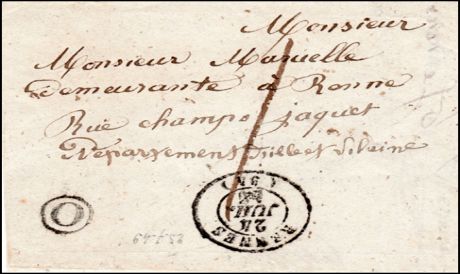 Monsieur
Monsieur Manuelle
Demeurante à Ronne
Rue champo jaquet
Département dille et vilaine
1
RENNES
24
JUIL.
(34)
O
23-7-49